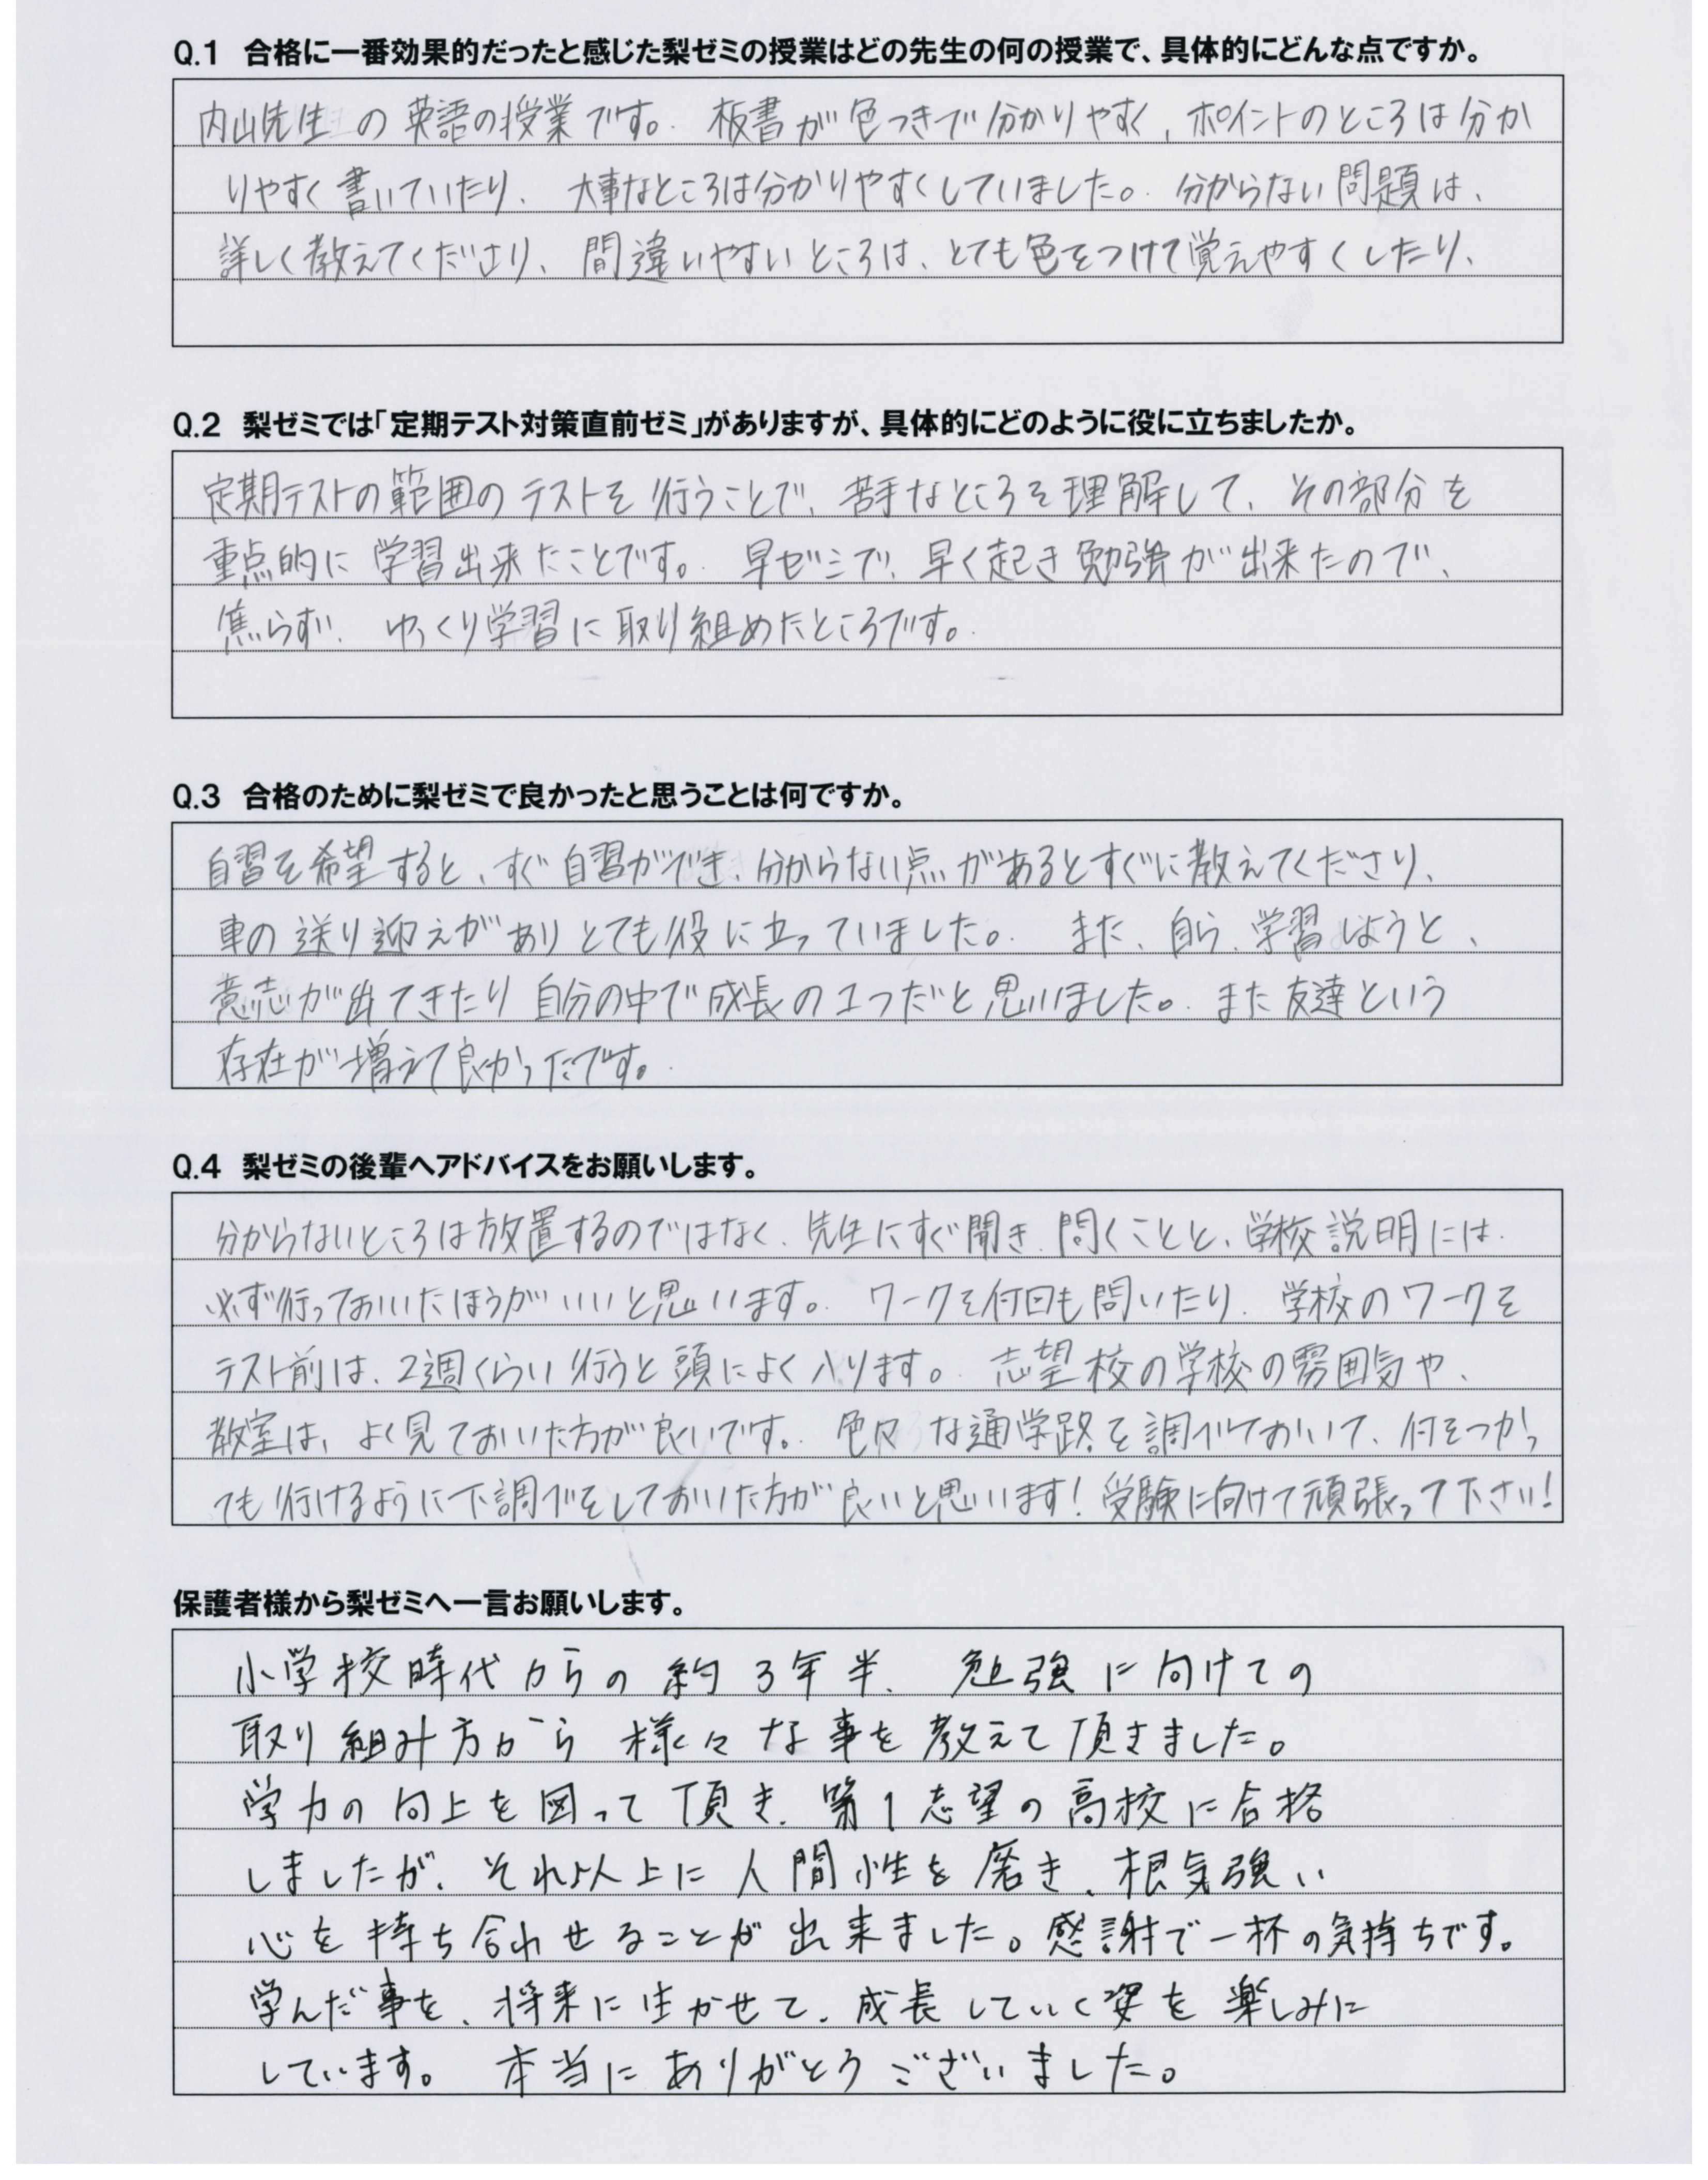 Q.1 合格に一番効果的だったと感じた梨ゼミの授業はどの先生の何の授業で、具体的にどんな点ですか。
内山先生の英語の授業です。板書が色つきで分かりやすく、ポイントのところは分か
りやすく書いていたり、大事なところは分かりやすくしていました。分からない問題は、
詳しく教えてくださり、間違いやすいところは、とても色をつけて覚えやすくしたり、
Q.2 梨ゼミでは「定期テスト対策直前ゼミ」がありますが、具体的にどのように役に立ちましたか。
定期テストの範囲のテストを行うことで、苦手なところを理解して、その部分を
重点的に学習出来たことです。早ゼミで、早く起き勉強が出来たので、
焦らず、ゆっくり学習に取り組めたところです。
Q.3 合格のために梨ゼミで良かったと思うことは何ですか。
自習を希望すると、すぐ自習ができ、分からない点があるとすぐに教えてくださり、
車の送り迎えがありとても役に立っていました。また、自ら、学習しようと、
意志が出てきたり自分の中で成長の1つだと思いました。また友達という
存在が増えて良かったです。
Q.4 梨ゼミの後輩へアドバイスをお願いします。
分からないところは放置するのではなく、先生にすぐ聞き、問くことと、学校説明には
必ず行っておいたほうがいいと思います。ワークを何回も問いたり、学校のワークを
テスト前は、2週くらい行うと頭によく入ります。志望校の学校の雰囲気や、
教室は、よく見ておいた方が良いです。色々な通学路を調べておいて、何をつかっ
ても行けるように下調べをしておいた方が良いと思います!受験に向けて頑張って下さい!
保護者様から梨ゼミへ一言お願いします。
小学校時代からの約3年半、勉強に向けての
取り組み方から様々な事を教えて頂きました。
学力の向上を図って頂き、第1志望の高校に合格
しましたが、それ以上に人間性を磨き、根気強い
心を持ち合わせることが出来ました。感謝で一杯の気持ちです。
学んだ事を、将来に生かせて、成長していく姿を楽しみに
しています。本当にありがとうございました。